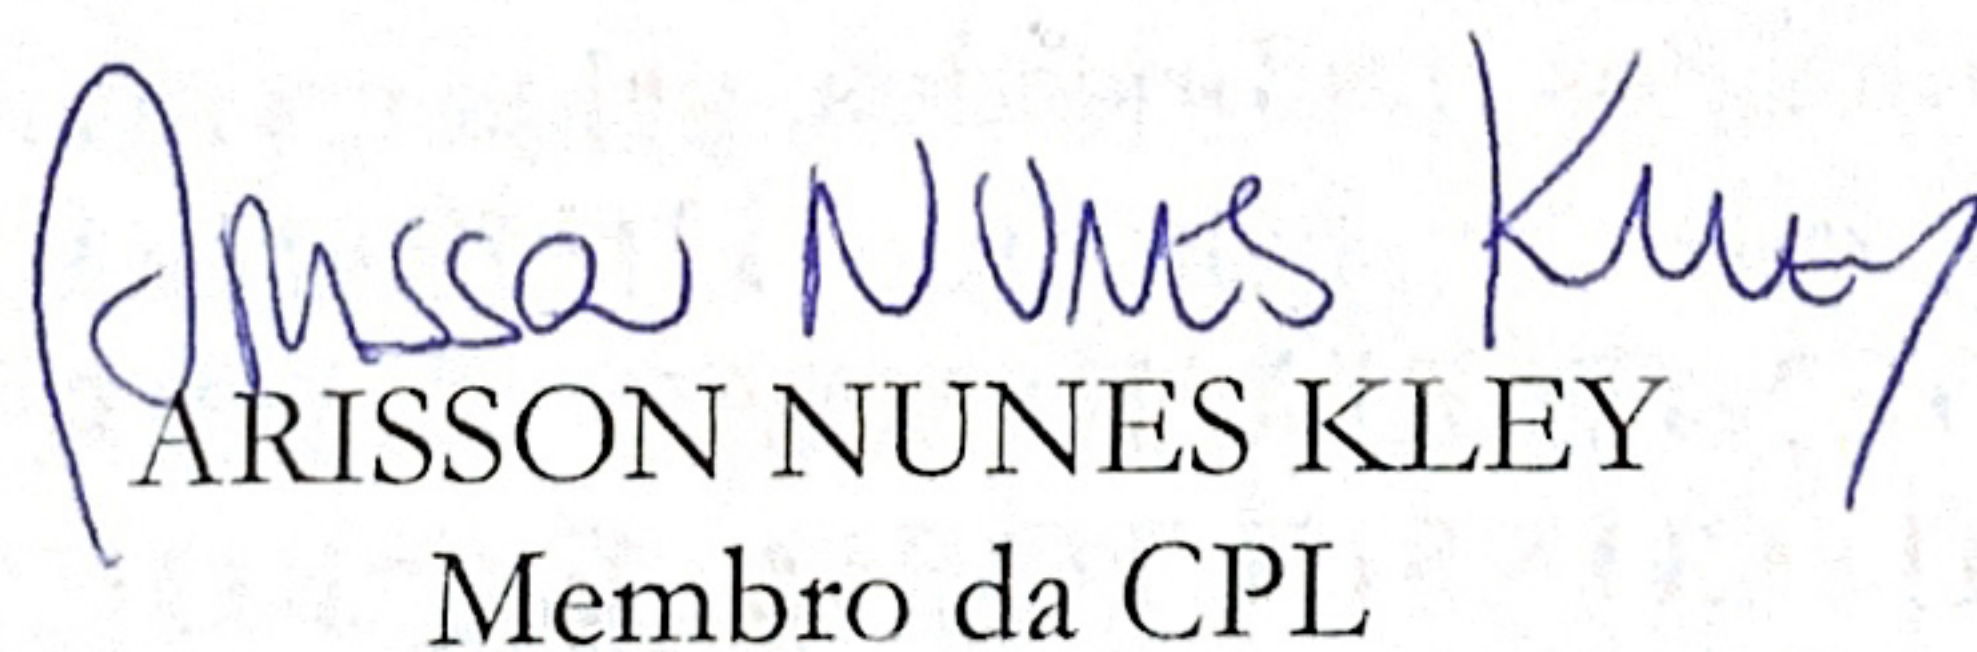 Arisson Nunes Kley
ARISSON NUNES KLEY
Membro da CPL